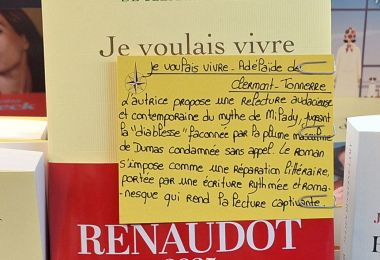 Je voulais vivre
je voulais vivre - Adélaïde de
Clermont-Tonnerre
L'autrice propose une relecture audacieuse
et contemporaine du mythe de Milady,
la "diablesse" façonnée par la plume masculine
de Dumas condamnée sans appel. Le roman
s'impose comme une réparation littéraire,
portée par une écriture rythmée et roma-
nesque qui rend la lecture captivante.
RENAUDOT